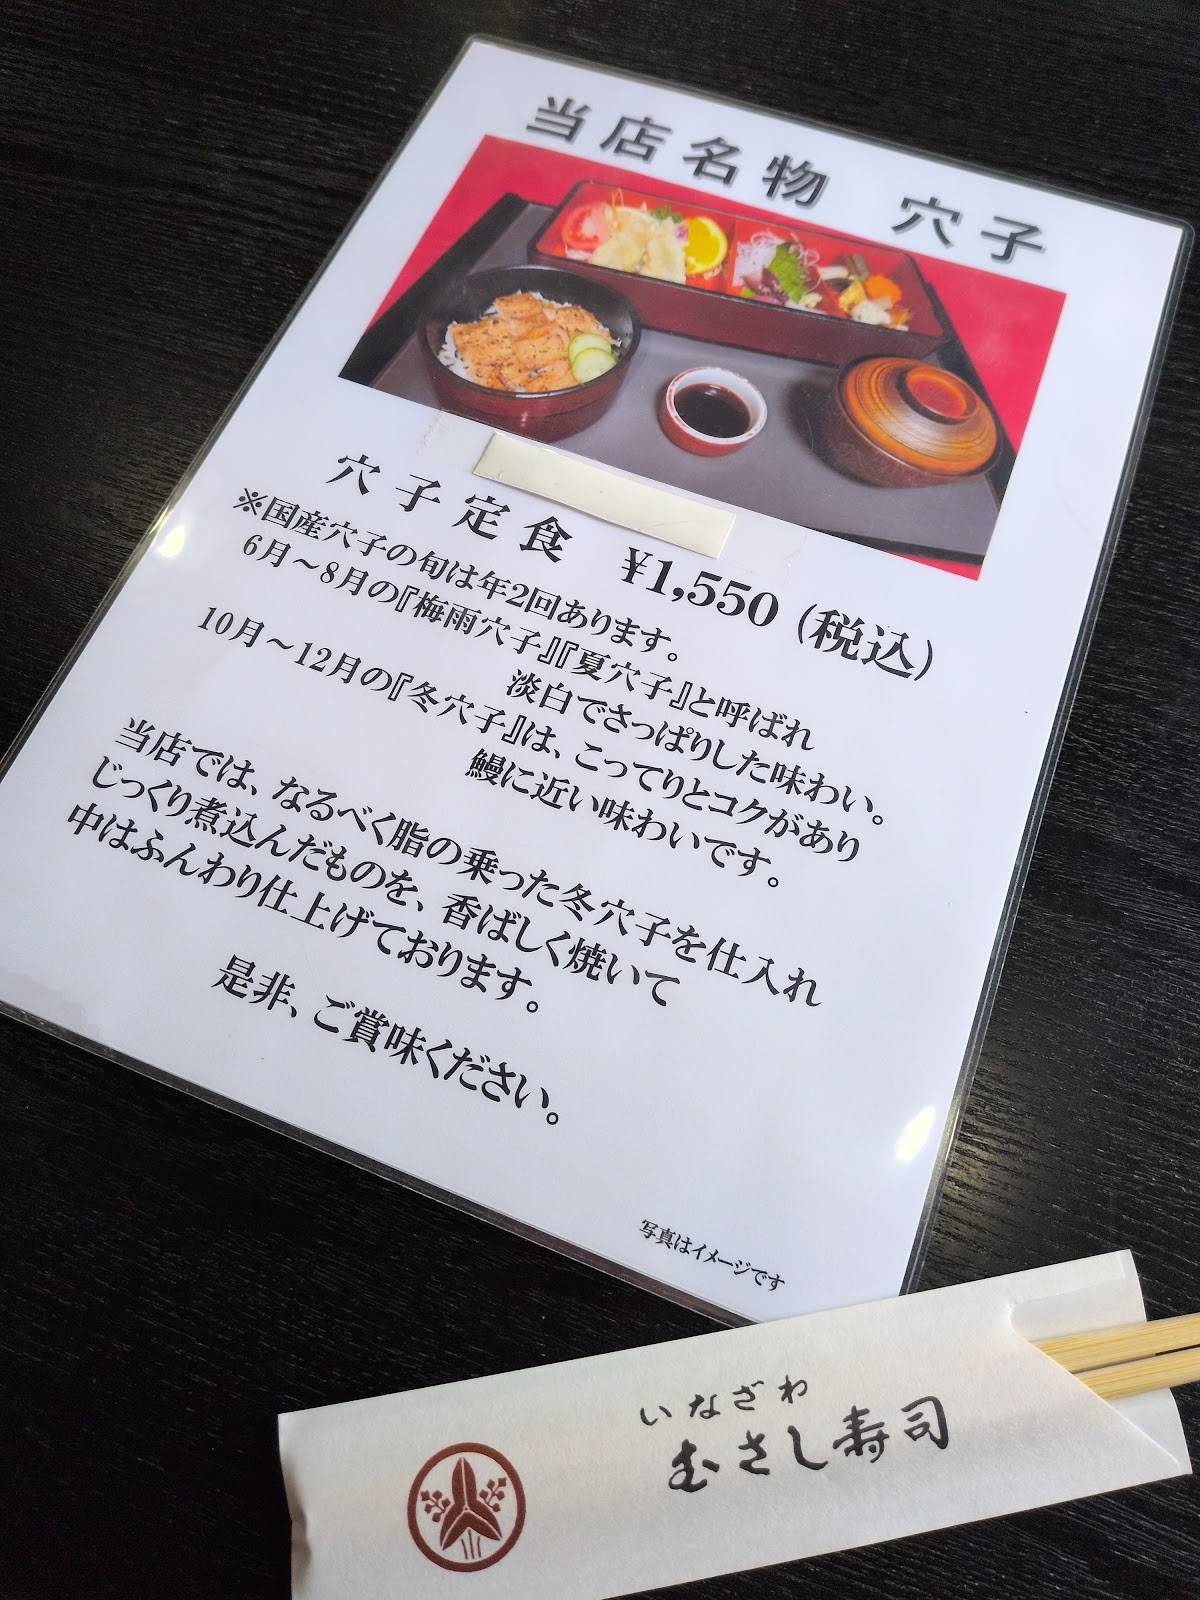 当店名物 穴子
穴子定食 ¥1,550(税込)
※国産穴子の旬は年2回あります。
6月～8月の『梅雨穴子』『夏穴子』と呼ばれ
淡白でさっぱりした味わい。
10月～12月の『冬穴子』は、こってりとコクがあり
鰻に近い味わいです。
当店では、なるべく脂の乗った冬穴子を仕入れ
じっくり煮込んだものを、香ばしく焼いて
中はふんわり仕上げております。
是非、ご賞味ください。
写真はイメージです
いなざわ
むさし寿司